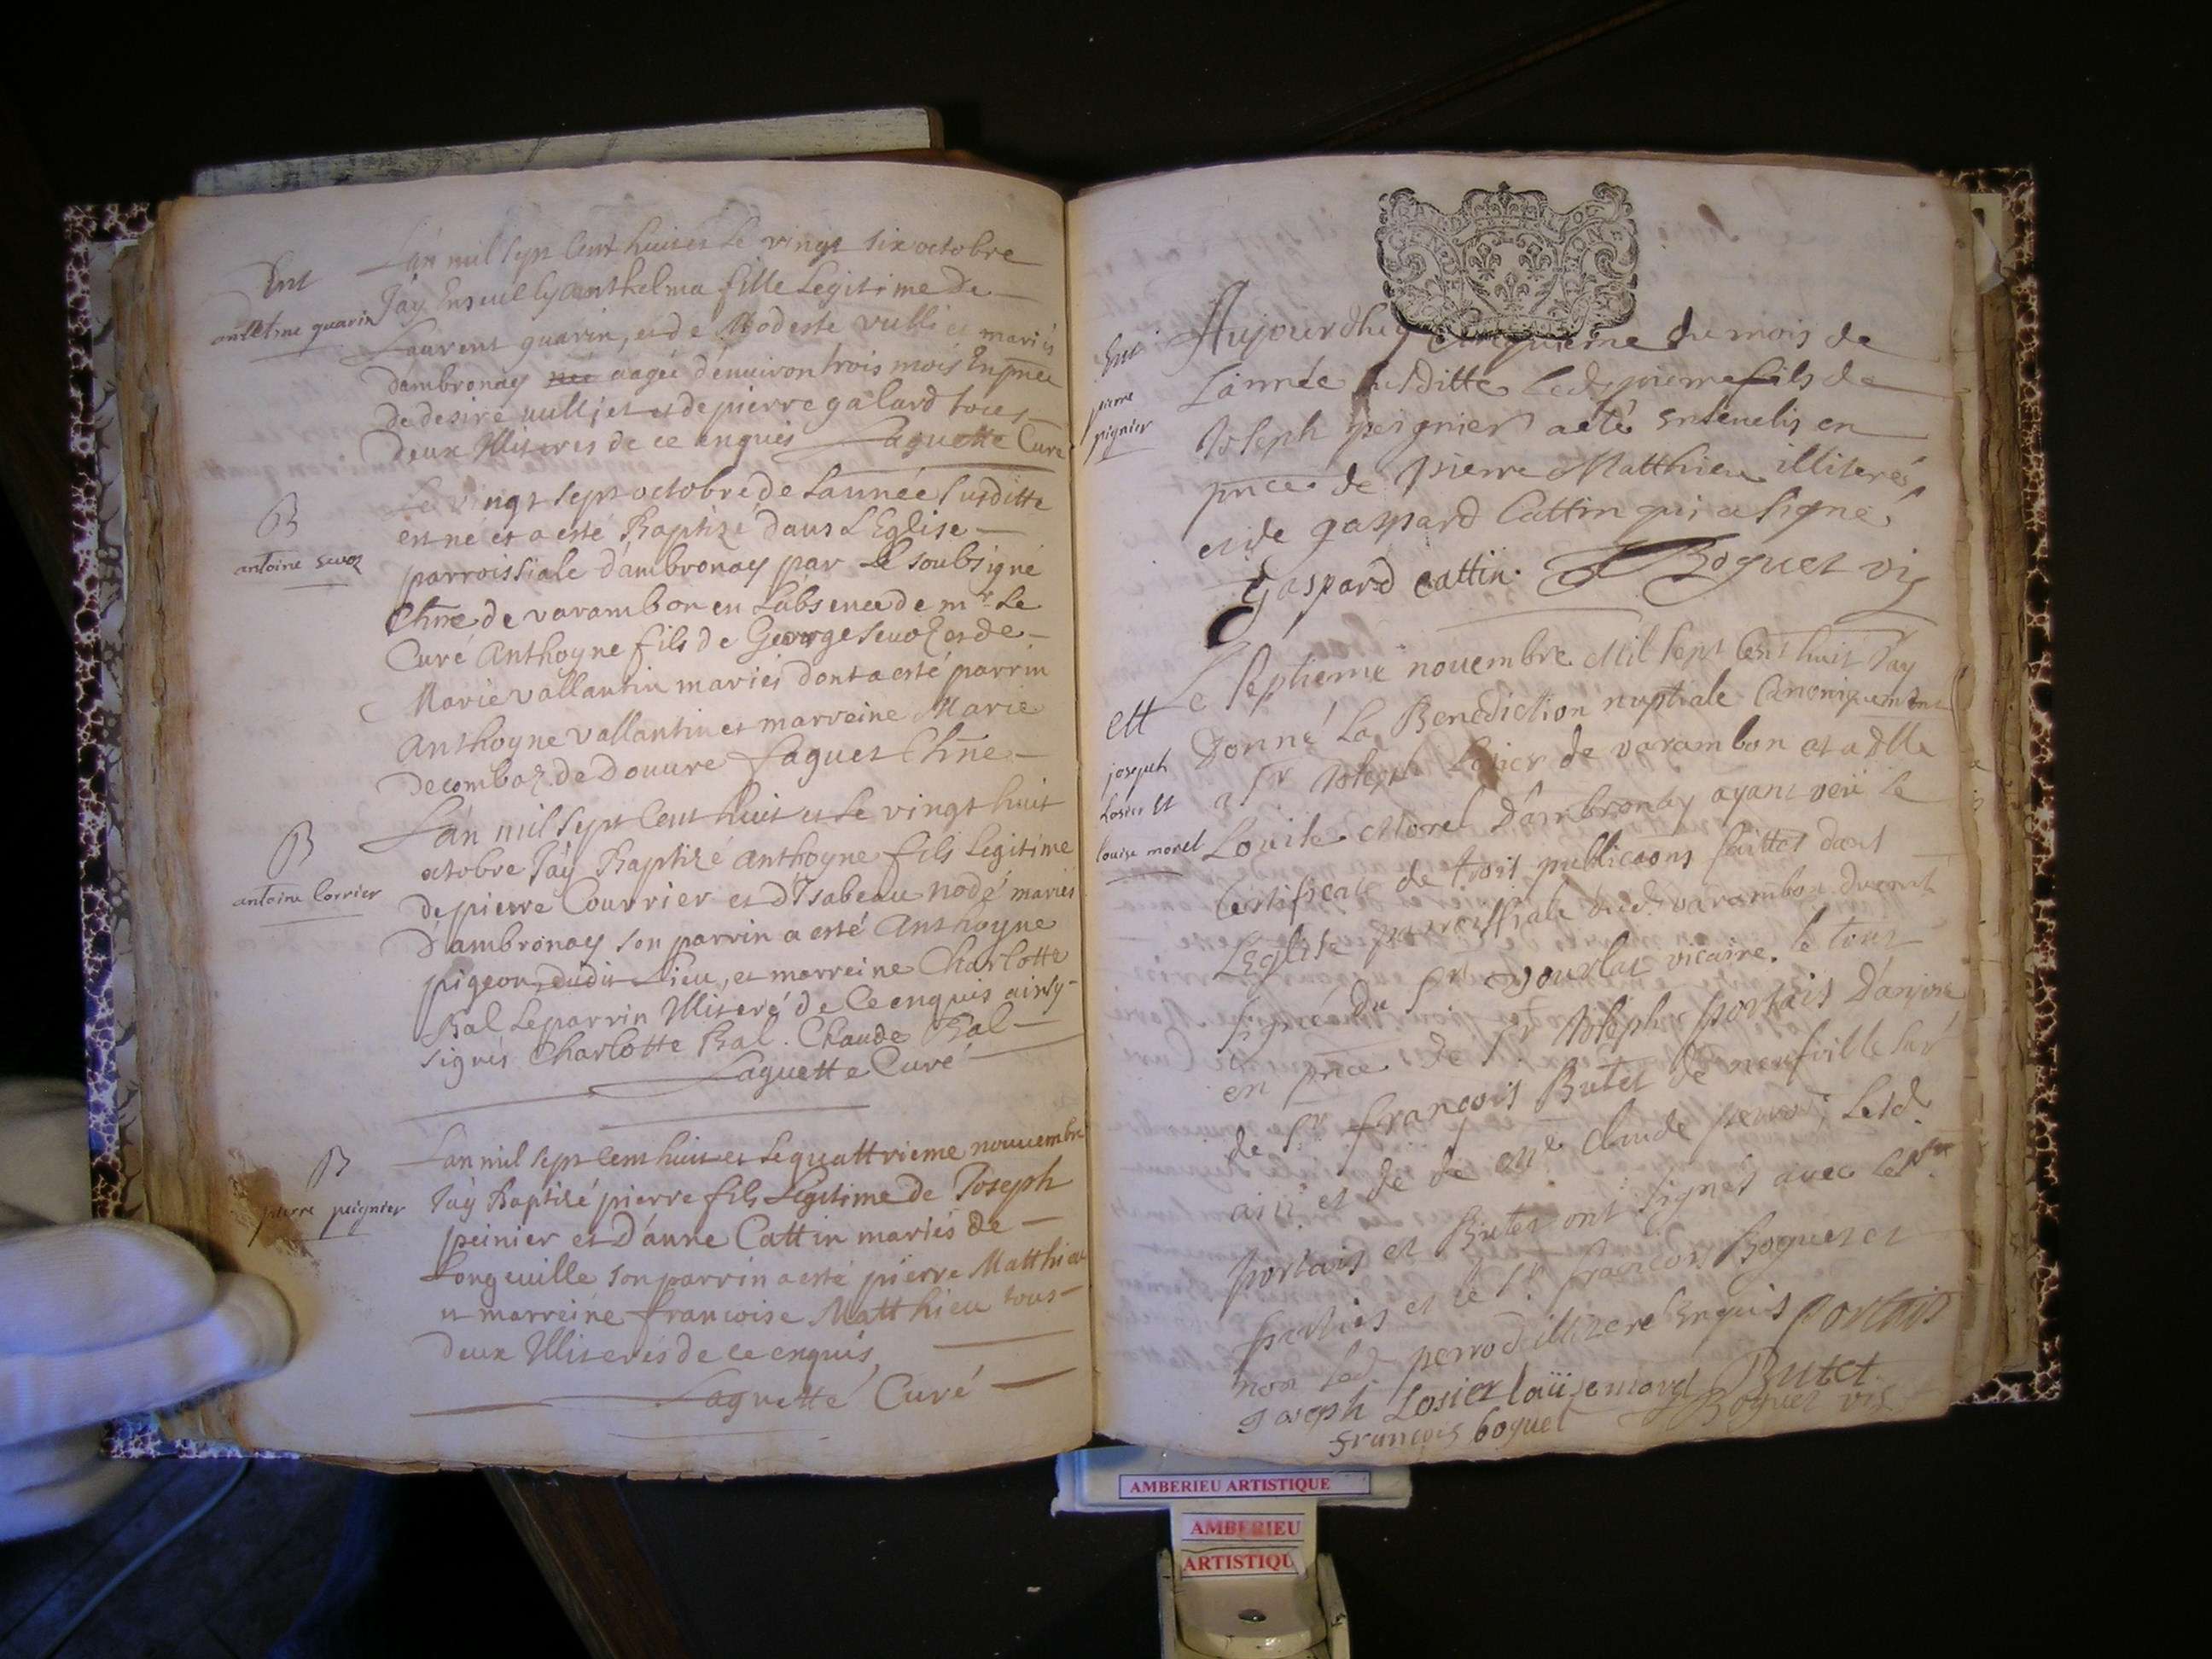 Ent
anthelme quarin
Lan mil sept Cent huit et Le vingt six octobre
Jay Enseuelly anthelma fille Legitime De
Laurent quarin, et de Modeste vulliet mariés
dambronay née aagée d'enuiron trois mois En pnce
de desiré vulliet et de pierre galard tous
deux Illiterés de ce enquis Laguette Curé
B
antoine sevoz
Le vingt sept octobre de Lannée susditte
est né et a esté Baptizé dans L'Eglise
parroissiale d'ambronay par Le soubsigné
Chne de varambon en Labsence de mr Le
Curé Anthoyne fils de George sevoz et de
Marie vallantin mariés dont a esté parrin
Anthoyne vallantin et marreine Marie
Decomboz de Douure Faguet Chne
B
antoine Corrier
Lan mil sept Cent huit et Le vingt huit
octobre Jay Baptizé anthoyne fils Legitime
de pierre Courrier et d'Isabeau nodé mariés
d'ambronay son parrin a esté Anthoyne
pigeon dudit Lieu, et marreine Charlotte
Bal Le parrin Illiteré de Ce enquis ainsy
signés Charlotte Bal. Claude Bal
Laguette Curé
B
pierre peignier
Lan mil sept Cent huit et Le quattrieme nouuembre
Jay Baptizé pierre fils Legitime de Joseph
peinier et D'anne Cattin mariés de
Longeuille son parrin a esté pierre Matthieu
et marreine francoise Matthieu tous
deux Illiterés de ce enquis
Laguette Curé
Ent
pierre
pignier
Aujourdhuy Cinquieme du mois de
L'année susditte led. pierre fils de
Joseph peignier a eté enseuelis en
pnce de pierre Matthieu illiterés
et de gaspard Cattin qui a signé
gaspard cattin. Boguet vic
Mt
joseph
Losier et
louise morel
Le septieme nouembre Mil sept Cent huit Jay
Donné La Benediction nuptiale Canoniquement
a Sr Joseph Losier de varambon et a dlle
Louise Morel d'ambronay ayant veü le
Certificat de trois publicaons faittes dans
L'Eglise parroissiale dud. varambon duement
signé du Sr vicaire. le tout
en pnce de Sr Joseph portais
de Sr françois Butet de neufville sur
ain et de Claude perrod, Lesd.
portais et Butet ont signés avec les
parties et le Sr françois Boguet et
non Led. perrod illiteré enquis Portais
Joseph Losier Loüise morel Butet
françois boguet Boguet vic
AMBERIEU ARTISTIQUE
AMBERIEU
ARTISTIQU